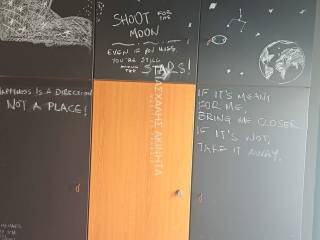 SHOOT FOR THE
MOON
EVEN IF YOU MISS,
YOU'RE STILL
AMONG THE STARS!
HAPPINESS IS A DIRECTION
NOT A PLACE!
IF IT'S MEANT
FOR ME,
BRING ME CLOSER
IF IT'S NOT,
TAKE IT AWAY.
ΠΑΣΧΑΛΗΣ ΑΚΙΝΗΤΑ